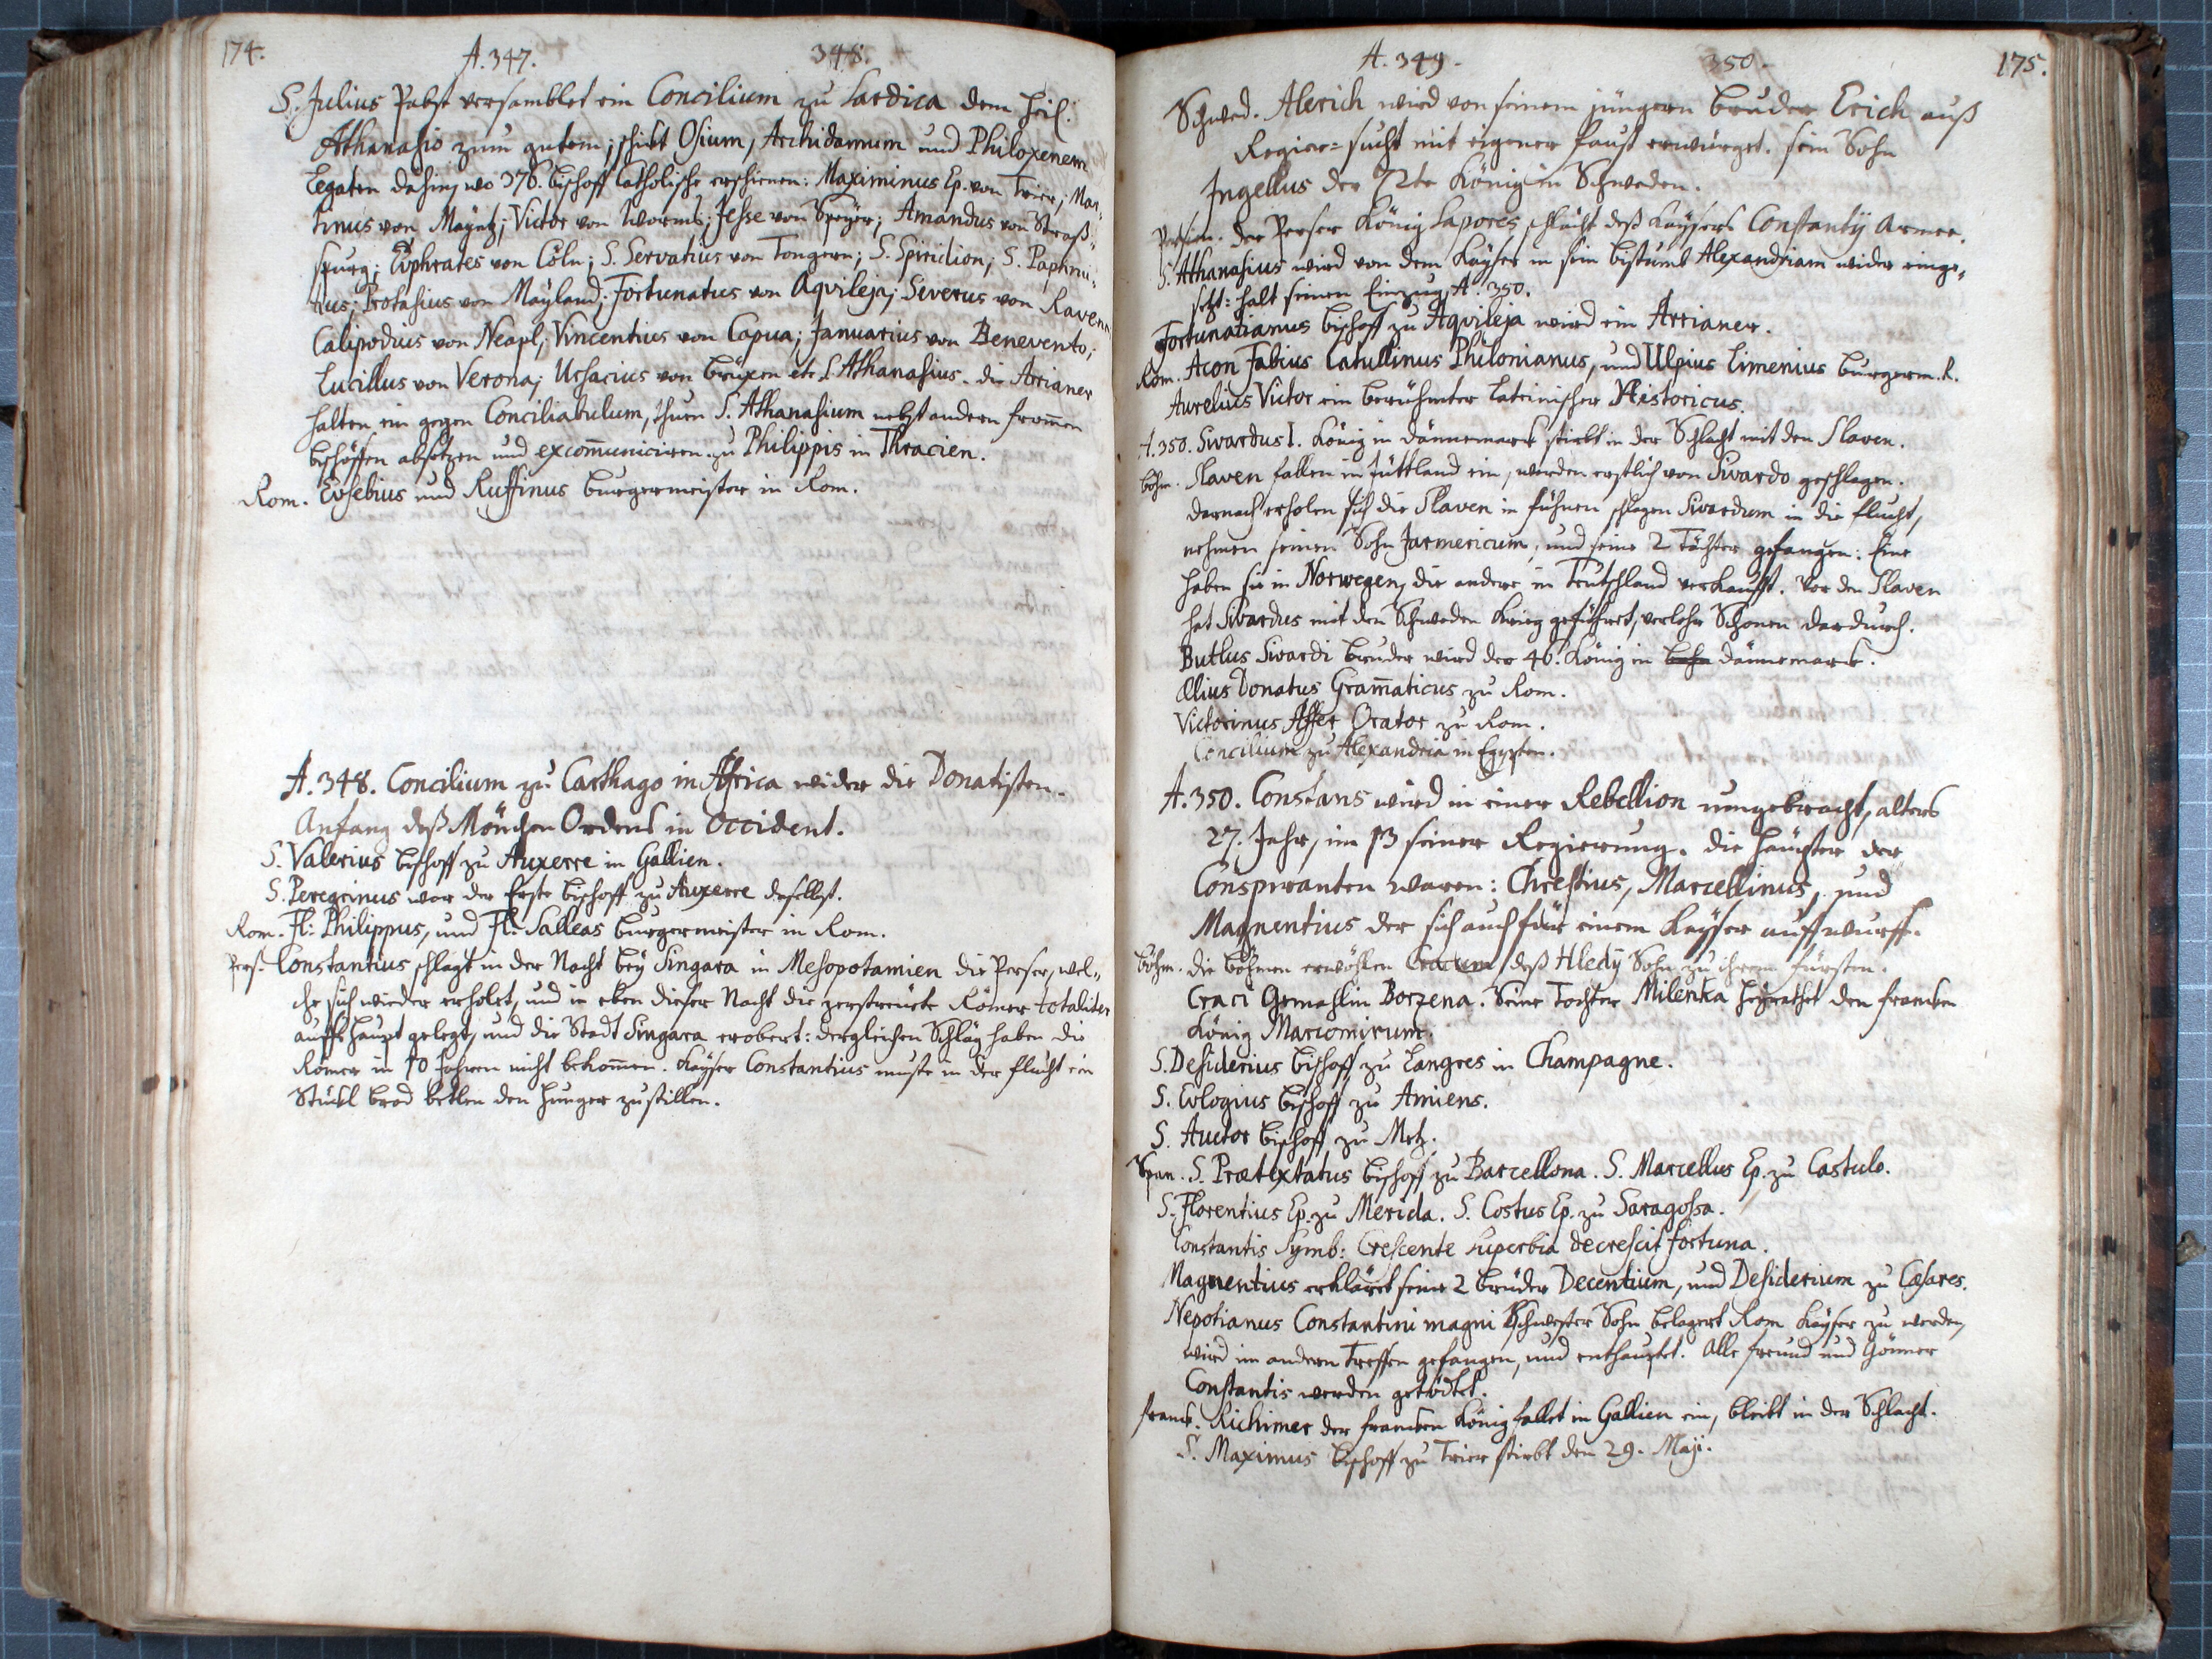 174.
A. 347.
348.
S. Julius Pabst versamblet ein Concilium zu Sardica dem Heil:
Athanasio zum gutem; schickt Osium, Archidamum und Philoxenem
Legaten dahin, wo 376. bischoff Catholische erschienen: Maximinus Ep. von Trier; Mar-
tinus von Mayntz; Victor von Worms; Jesse von Speyer; Amandus von Straß-
spurg; Euphrates von Cöln; S. Servatius von Tongern; S. Spiridion; S. Paphnu-
tius; Protasius von Mayland; Fortunatus von Aqvileja; Severus von Ravenn
Calipodius von Neapl; Vincentius von Capua; Januarius von Benevento;
Lucillus von Verona; Ursacius von brixen etc S. Athanasius. die Arrianer
halten ein gegen Conciliabulum, thuen S. Athanasium nebst andern from̄en
bischöffen absetzen und excom̄uniciren zu Philippis in Thracien.
Rom. Eusebius und Ruffinus burgermeister in Rom.
A. 348. Concilium zu Carthago in Africa wider die Donatisten.
Anfang deß Mönchen Ordens in Occident.
S. Valerius bischoff zu Auxerre in Gallien.
S. Peregrinus war der Erste bischoff zu Auxerre daselbst.
Rom. Fl: Philippus, und Fl: Salleas burgermeister in Rom.
Pers. Constantius schlagt in der Nacht bey Singara in Mesopotamien die Perser, wel-
che sich wieder erholet, und in eben dieser Nacht die zerstreute Römer totaliter
auffs haupt gelegt, und die Stadt Singara erobert: dergleichen Schläg haben die
Römer in 10 Jahren nicht bekom̄en. Kayser Constantius muste in der flucht ein
Stückl brod betlen den Hunger zustillen.
A. 349.
350.
175.
Schwed. Alerich wird von seinem jüngern bruder Erich auß
Regier=sucht mit eigener faust erwürget. sein Sohn
Ingellus der 72te König in Schweden.
Persien. der Perser König Sapores schlacht deß Kaysers Constantij Armee.
S. Athanasius wird von dem Kayser in sein bistumb Alexandriam wider einge-
setzt: halt seinen Einzug A. 350.
Fortunatianus bischoff zu Aqvileja wird ein Arrianer.
Rom. Acon Fabius Catullinus Philonianus, und Ulpius Limenius burgerm. R.
Aurelius Victor ein berühmter Lateinischer Historicus.
A. 350. Sivardus I. König in dännemarck stirbt in der Schlacht mit den Slaven.
böhm. Slaven fallen in Jüttland ein, werden erstlich von Sivardo geschlagen.
darnach erholen sich die Slaven in fühnen schlagen Sivardum in die flucht,
nehmen seinen Sohn Jarmericum, und seine 2 töchter gefangen: Eine
haben sie in Norwegen, die andere in Teutschland verkaufft. Vor den Slaven
hat Sivardus mit den Schweden Krieg geführet, verlohr Schonen dardurch.
Butlus Sivardi bruder wird der 46. König in dännemarck.
Ælius Donatus Gram̄aticus zu Rom.
Victorinus Affer Orator zu Rom.
Concilium zu Alexandria in Egypten.
A. 350. Constans wird in einer Rebellion umgebracht, alters
27. Jahr, im 13 seiner Regierung. die häupter der
Conspiranten waren: Chrestius, Marcellinus, und
Magnentius der sich auch für einem Kayser auffwurff.
böhm. die böhmen erwöhlen Cracum deß Hledij Sohn zu ihrem fürsten.
Craci Gemahlin Borzena. Seine Tochter Milenka heyrathet den francken
König Marcomirum.
S. Desiderius bischoff zu Langres in Champagne.
S. Eulogius bischoff zu Amiens.
S. Auctor bischoff zu Metz.
Span. S. Prætextatus bischoff zu Barcellona. S. Marcellus Ep. zu Castulo.
S. Florentius Ep. zu Merida. S. Costus Ep. zu Saragossa.
Constantis Symb: Crescente superbia decrescit fortuna.
Magnentius erkläret seine 2 brüder Decentium, und Desiderium zu Cæsares.
Nepotianus Constantini magni Schwester Sohn belagert Rom Kayser zu werden,
wird im andern Treffen gefangen, und enthauptet. Alle freund und Gönner
Constantis werden getödtet.
franck. Richimer der francken König fallet in Gallien ein, bleibt in der Schlacht.
S. Maximus bischoff zu Trier stirbt den 29. Maji.